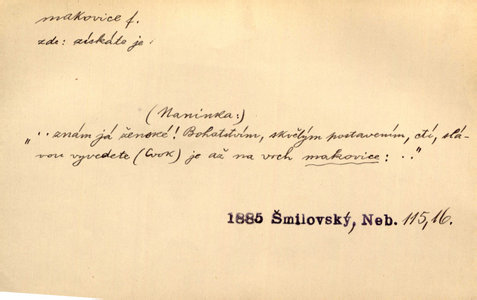 makovice f.
zde: získáte je
(Naninka:)
„..znám já ženské! Bohatstvím, skvělým postavením, ctí, slá-
vou vyvedete (CvOK) je až na vrch makovice: .."
1885 Šmilovský, Neb. 115,16.